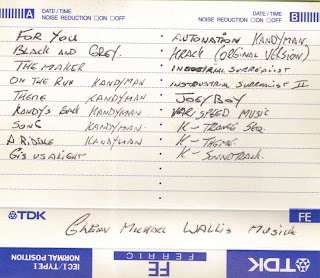 A
DATE / TIME
NOISE REDUCTION □ ON □ OFF
DATE / TIME
NOISE REDUCTION □ ON □ OFF
B
FOR YOU
BLACK AND GREY.
THE MAKER
ON THE RUN KANDYMAN
THEME KANDYMAN
KANDY'S BACK KANDYMAN
SONG KANDYMAN.
A RIDDLE KANDYMAN
GIS US A LIGHT
AUTONATION KANDYMAN
KRACK (ORGINAL VERSION)
INDUSTRIAL SURREALIST
INDUSTRIAL SURREALIST II
JOEY BOY
VARI SPEED MUSIC
K- TRAVEL SEQ.
K- THEME
K- SOUNDTRACK.
TDK
FE
GLENN MICHAEL WALLIS MUSICK
IEC I / TYPE I
NORMAL POSITION
FE
FERRIC
TDK